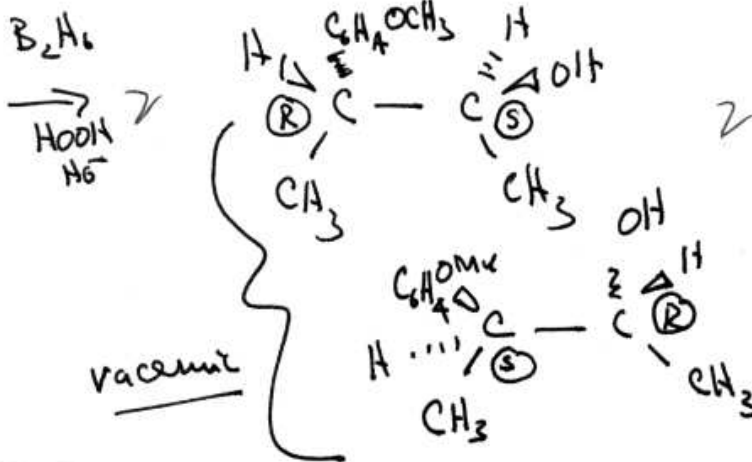 B₂H₆
HOOH
HO⁻
2
H C₆H₄OCH₃ H
R C — C S OH
CH₃ CH₃
2
OH
C₆H₄OMe H
H C — C R
S
CH₃ CH₃
racemic